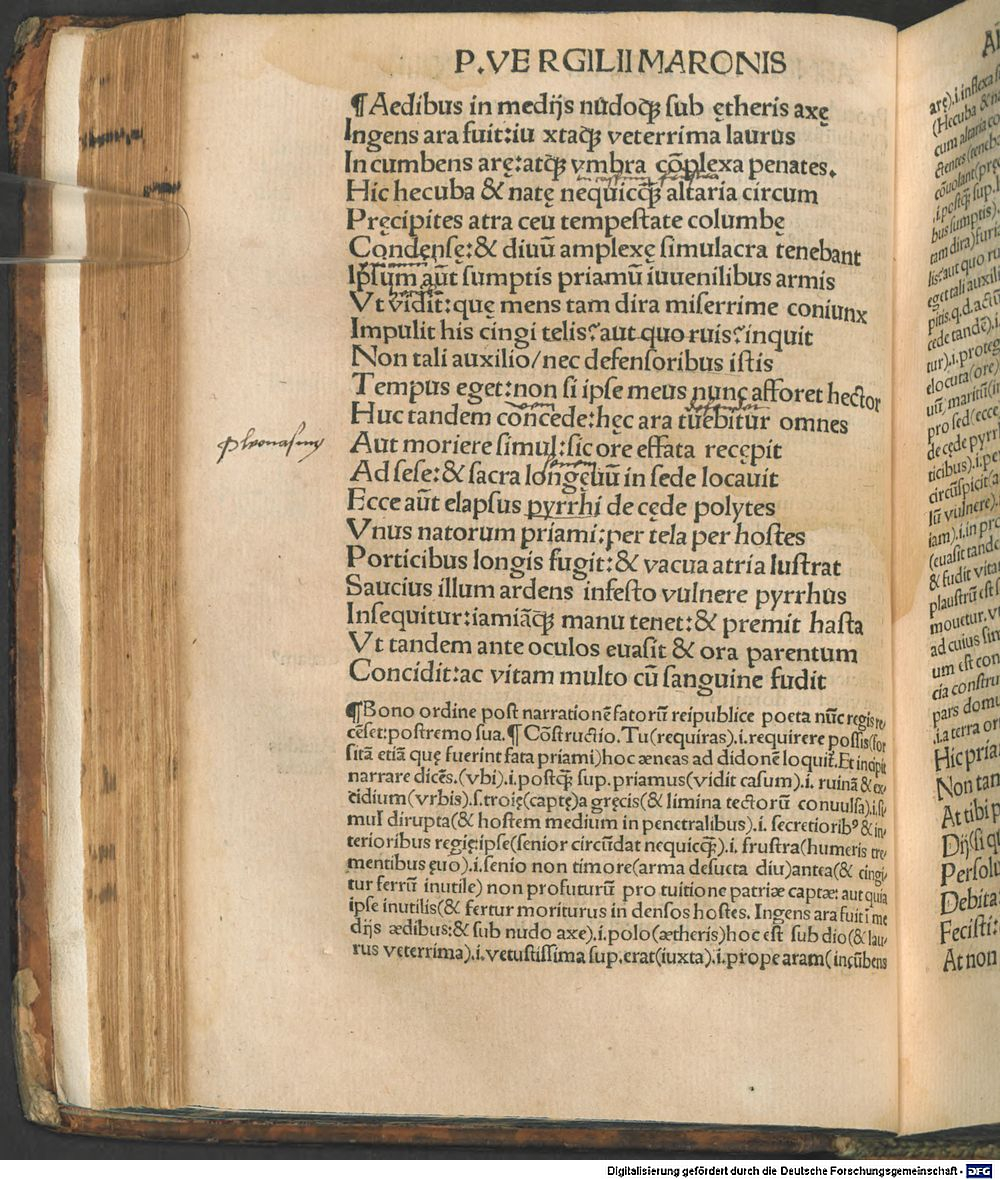 P.VERGILII MARONIS
¶Aedibus in medijs nudoq̃ sub ętheris axę
Ingens ara fuit:iu xtaq̃ veterrima laurus
Incumbens arę:atq̃ vmbra cõplexa penates.
Hic hecuba & natę nequicq̃ altaria circum
Pręcipites atra ceu tempestate columbę
Condensę:& diuũ amplexę simulacra tenebant
Ipsum aũt sumptis priamũ iuuenilibus armis
Vt vidit:quę mens tam dira miserrime coniunx
Impulit his cingi telis? aut quo ruis? inquit
Non tali auxilio/nec defensoribus istis
Tempus eget:non si ipse meus nunc afforet hector
Huc tandem concede:hęc ara tuebitur omnes
pleonasmus
Aut moriere simul:sic ore effata recępit
Ad sese:& sacra longęuũ in sede locauit
Ecce aũt elapsus pyrrhi de cęde polytes
Vnus natorum priami:per tela per hostes
Porticibus longis fugit:& vacua atria lustrat
Saucius illum ardens infesto vulnere pyrrhus
Insequitur:iamiãq̃ manu tenet:& premit hasta
Vt tandem ante oculos euasit & ora parentum
Concidit:ac vitam multo cũ sanguine fudit
¶Bono ordine post narrationẽ fatorũ reipublice poeta nũc regis re-
cẽset:postremo sua.¶ Cõstructio. Tu(requiras).i.requirere possis(for
sitã etiã quę fuerint fata priami)hoc æneas ad didonẽ loquit̃. Et incipit
narrare dicẽs.(vbi).i.postq̃ sup. priamus(vidit casum).i. ruinã & ex
cidium(vrbis).s.troię(captę)a gręcis(& limina tectorũ conuulsa).i.si
mul dirupta(& hostem medium in penetralibus).i. secretiorib⁹ & in-
terioribus regię:ipse(senior circũdat nequicq̃).i. frustra(humeris tre
mentibus ęuo).i.senio non timore(arma desueta diu)antea(& cingi-
tur ferrũ inutile) non profuturũ pro tuitione patriæ captæ: aut quia
ipse inutilis(& fertur moriturus in densos hostes. Ingens ara fuit ĩ me
dijs ædibus:& sub nudo axe).i.polo(ætheris)hoc est sub dio(& lau-
rus veterrima).i.vetustissima sup.erat(iuxta).i.prope aram(incũbens
Digitalisierung gefördert durch die Deutsche Forschungsgemeinschaft - DFG